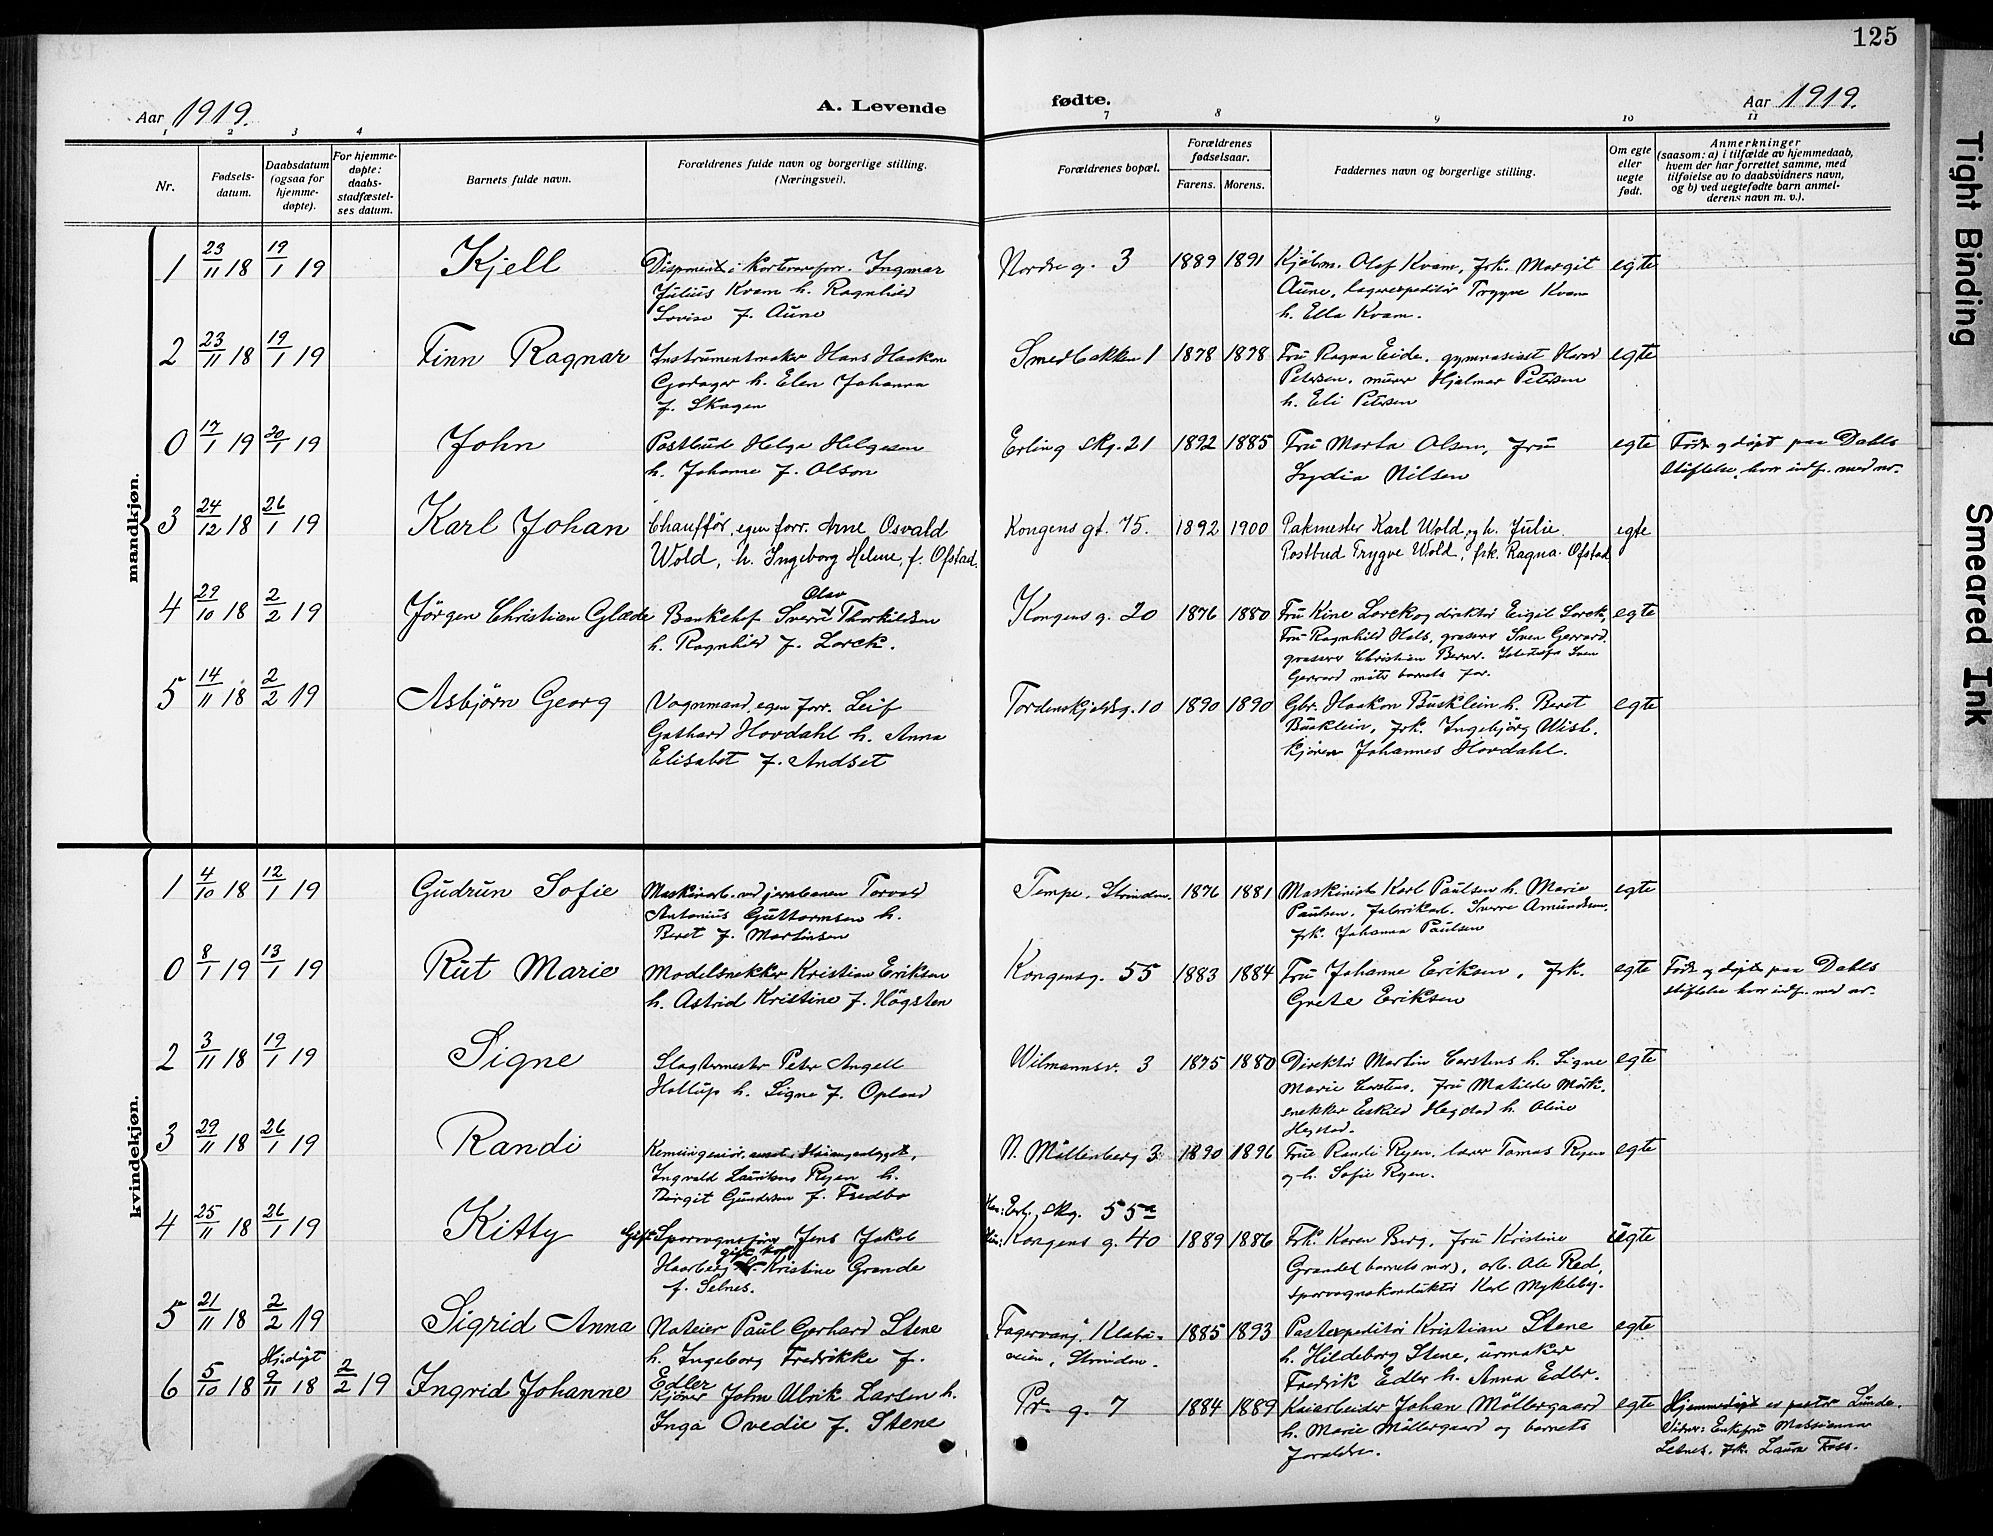 125
Aar 1919.
A. Levende
fødte.
Aar 1919.
1 2 3 4
7 8 9 10 11
Nr.
Fødsels-
datum.
Daabsdatum
(ogsaa for
hjemme-
døpte).
For hjemme-
døpte:
daabs-
stadfæstel-
ses datum.
Barnets fulde navn.
Forældrenes fulde navn og borgerlige stilling.
(Næringsvei).
Forældrenes bopæl.
Forældrenes
fødselsaar.
Farens. Morens.
Faddernes navn og borgerlige stilling.
Om egte
eller
uegte
født.
Anmerkninger
(saasom: a) i tilfælde av hjemmedaab,
hvem der har forrettet samme, med
tilføielse av to daabsvidners navn,
og b) ved uegtefødte barn anmel-
derens navn m. v.).
mandkjøn.
1 23/11 18 19/1 19 Kjell
Disponent i kortevareforr. Ingmar
Julius Kvam h. Ragnhild
Lovise f. Aune
Nordre g. 3 1889 1891
Kjøbm. Olaf Kvam, frk. Margit
Aune, lagerexpeditør Trygve Kvam
h. Ella Kvam.
egte
2 23/11 18 19/1 19 Finn Ragnar
Instrumentmaker Hans Haakon
Godager h. Elen Johanna
f. Skagen
Smedbakken 1 1878 1878
Fru Ragna Eide, gymnasiast
Petersen, murer Hjalmar Petersen
h. Eli Petersen
egte
0 17/1 19 20/1 19 John
Postbud Helge Helgesen
h. Johanne f. Olson
Erling Skg. 21 1892 1885
Fru Marta Olsen, fru
Lydia Nilsen
egte
Født og døpt paa Dahls
stiftelse, hvor indf. med nr.
3 24/12 18 26/1 19 Karl Johan
Chauffør, egen forr. Arne Osvald
Wold, h. Ingeborg Helene, f. Ofstad.
Kongens gt. 75. 1892 1900
Pakmester Karl Wold, og h. Julie
Postbud Trygve Wold, frk. Ragna Ofstad
egte
4 29/10 18 2/2 19 Jörgen Christian Glæde
Olav
Bankchef Sverre Thorkildsen
h. Ragnhild f. Lorck.
Kongens g. 20 1876 1880
Fru Kine Lorck og direktør Eigil Lorck,
Fru Ragnhild Hals, grosserer Sven Gerrard
grosserer Christian Berner.
Gerrard møtte barnets far.
egte
5 14/11 18 2/2 19 Asbjörn Georg
Vognmand, egen forr. Leif
Gothard Hovdahl h. Anna
Elisabet f. Andset
Tordenskjoldsg. 10 1890 1890
Gbr. Haakon Busklein h. Beret
Busklein, frk. Ingebjörg Wist.
kjörer Johannes Hovdahl.
egte
kvindekjøn.
1 4/10 18 12/1 19 Gudrun Sofie
Maskinarb. ved jernbanen Torvald
Antonius Guttormsen h.
Beret f. Martinsen
Tempe, Strinden. 1876 1881
Maskinist Karl Paulsen h. Marie
Paulsen, fabrikarb. Sverre Amundsen,
frk. Johanna Paulsen
egte
0 8/1 19 13/1 19 Rut Marie
Modelsnekker Kristian Eriksen
h. Astrid Kristine f. Högsten
Kongensg. 55 1883 1884
Fru Johanne Eriksen, frk.
Grete Eriksen
egte
Født og døpt paa Dahls
stiftelse hvor indf. med nr.
2 3/11 18 19/1 19 Signe
Slagtermester Peter Angell
Hollup h. Signe f. Opland
Wilmannsv. 3 1875 1880
Direktör Martin Carstens h. Signe
Marie Carstens, fru Matilde Mörk,
snekker Eskild Hegstad h. Aline
Hegstad.
egte
3 29/11 18 26/1 19 Randi
Kemiingeniör,
Ingvald Lauritsens Ryen h.
Birgit Gundersen f. Fredbo
N. Möllenberg 3 1890 1896
Frue Randi Ryen, lærer Tomas Ryen
og h. Sofie Ryen.
egte
4 25/11 18 26/1 19 Kitty
Gift Sporvognsfører Jens Jakob
Haarberg gift kv. Kristine Grande
f. Selnes.
Han: Erl. Skg. 55a
Hun: Kongens g. 40 1889 1886
Frk. Karen Berg, fru Kristine
Grande (barnets mor), arb. Ole Red,
sporvognskonduktör Karl Mykleby.
uegte
5 21/11 18 2/2 19 Sigrid Anna
Nateier Paul Gerhard Stene
h. Ingeborg Fredrikke f.
Edler
Fagervang, Klæbu-
veien, Strinden. 1885 1893
Postexpeditör Kristian Stene
h. Hildeborg Stene, urmaker
Fredrik Edler h. Anna Edler.
egte
6 5/10 18 Hj.døpt 9/11 18 2/2 19 Ingrid Johanne
Kjörer John Ulrik Larsen h.
Inga Ovedie f. Stene
Pr. g. 7 1884 1889
Kaiarbeider Johan Möllergaard
h. Marie Möllergaard og barnets
forældre.
egte
Hjemmedøpt av pastor Lunde.
Vidner: Enkefru Massianna
Selnes, frk. Laura Foss.
Tight Binding
Smeared Ink